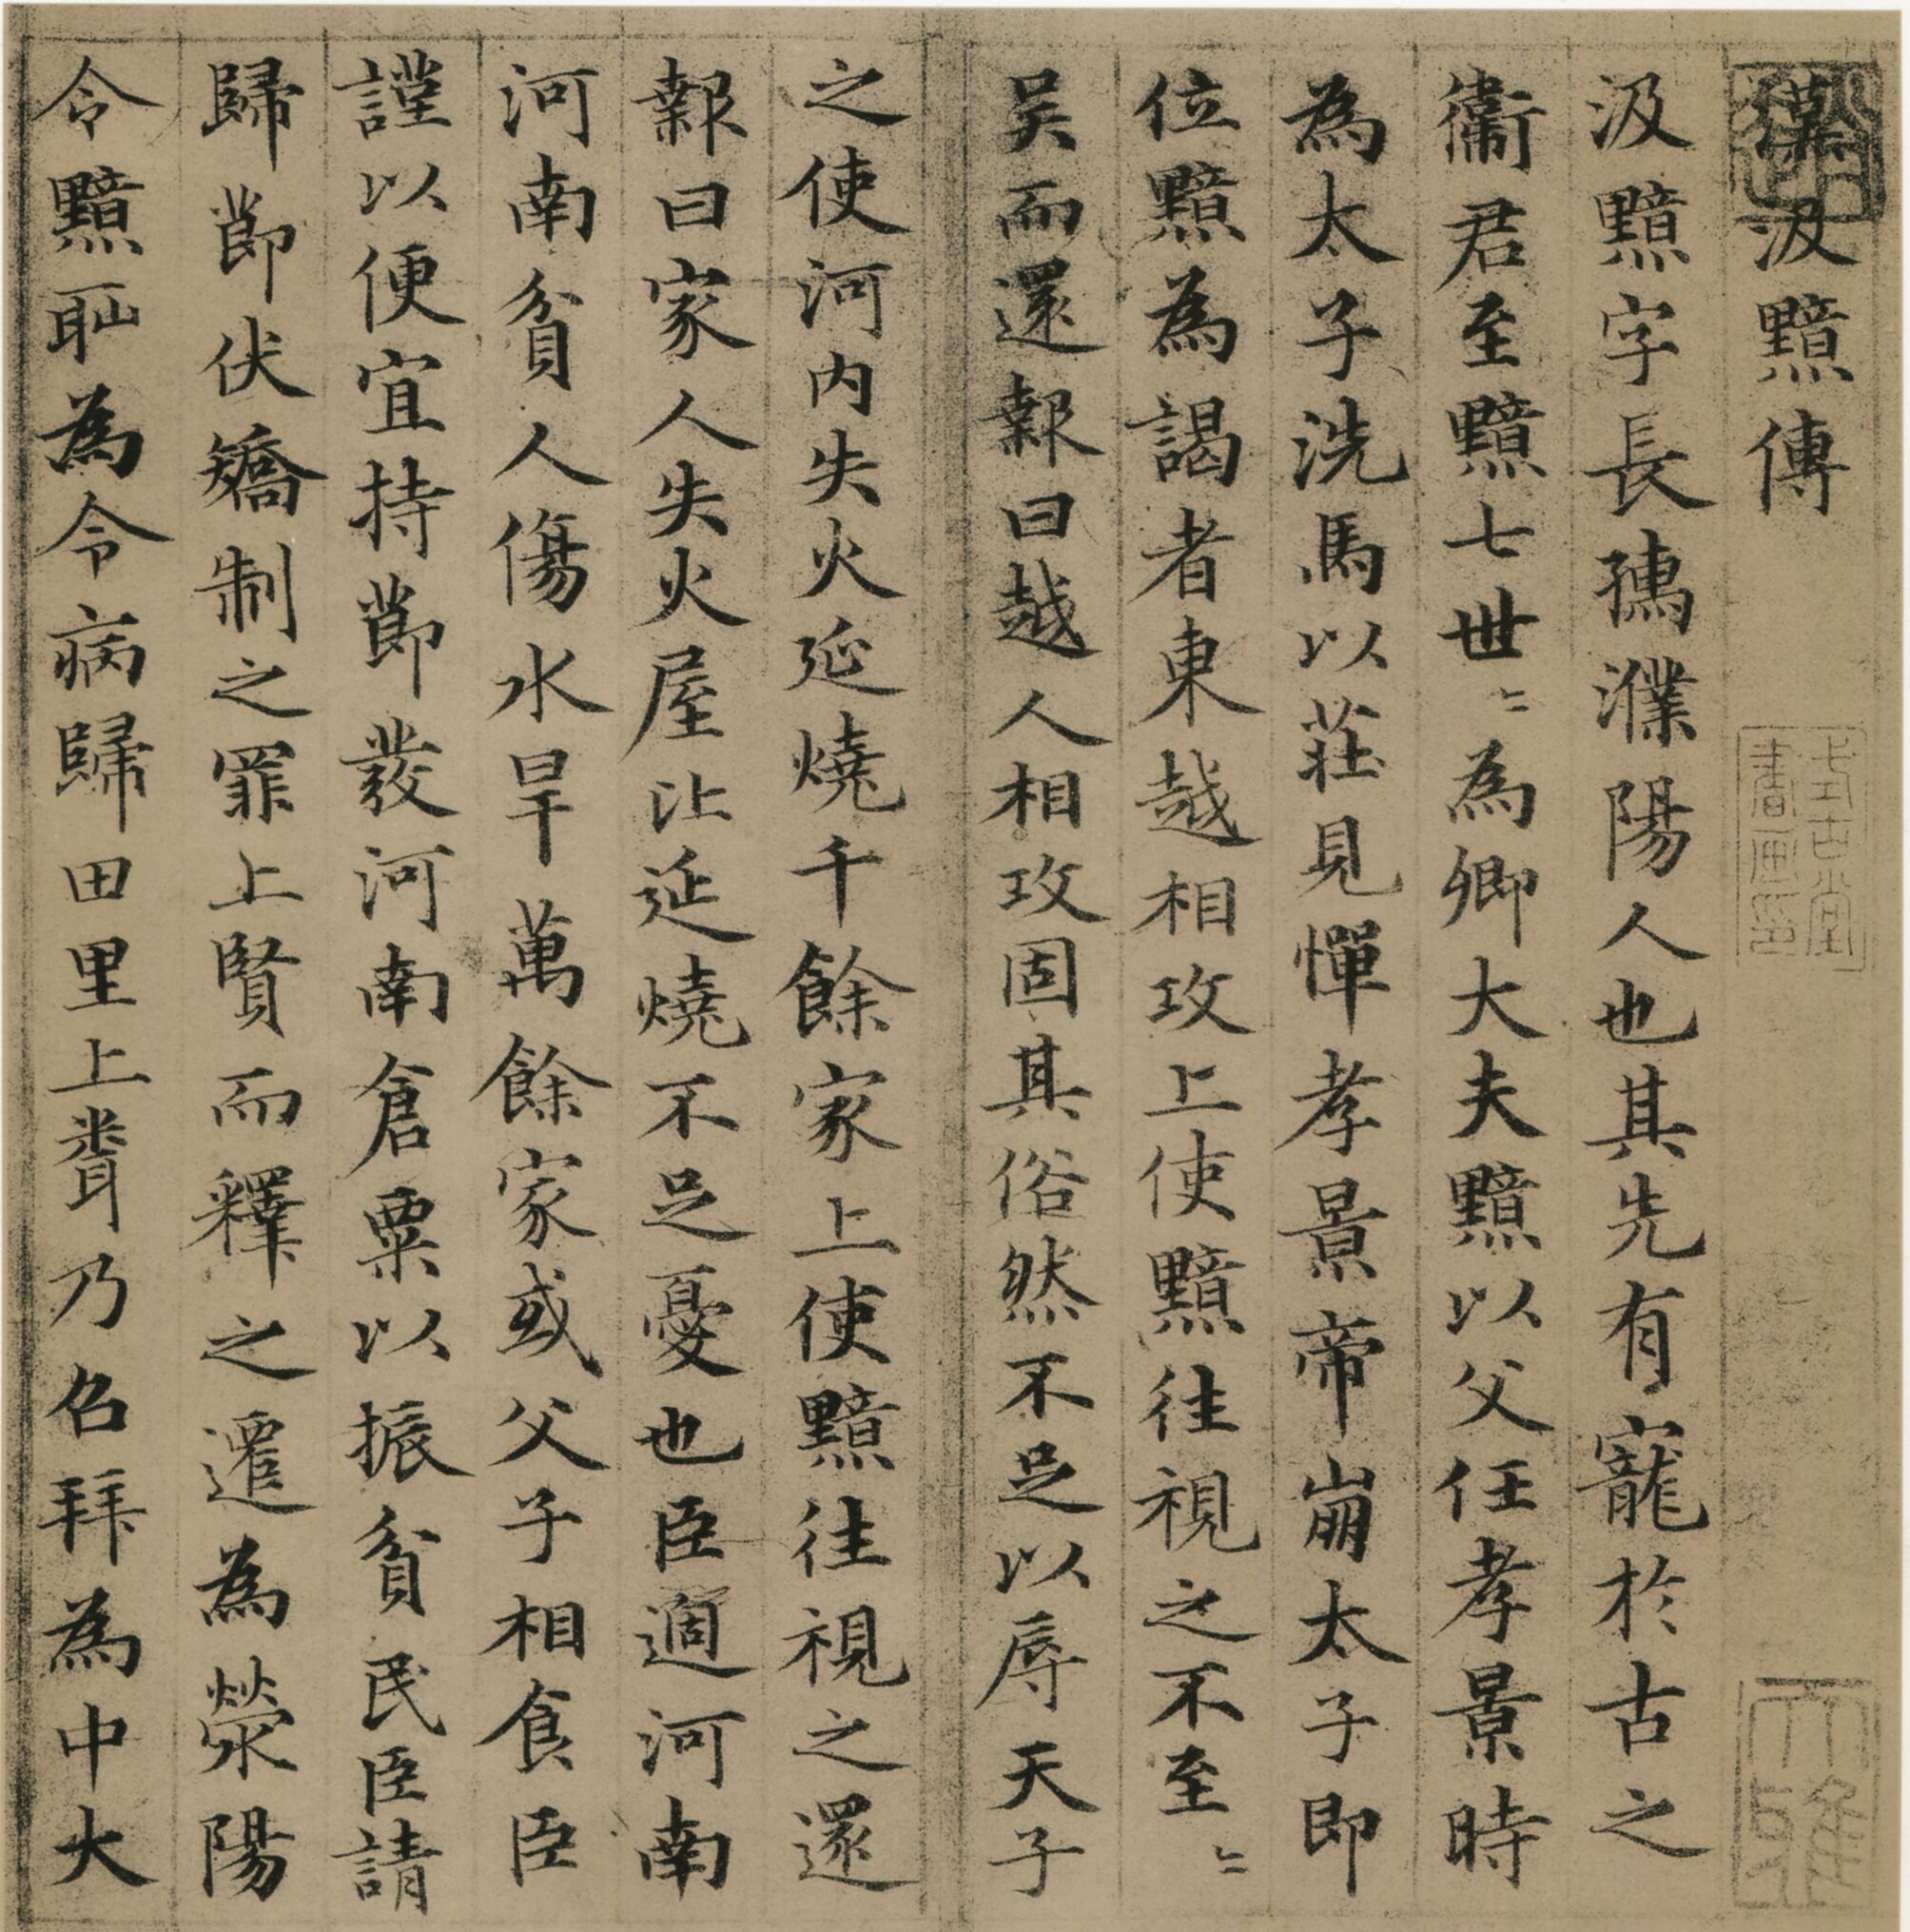 漢汲黯傳
汲黯字長孺濮陽人也其先有寵於古之
衞君至黯七世〻為卿大夫黯以父任孝景時
為太子洗馬以莊見憚孝景帝崩太子即
位黯為謁者東越相攻上使黯往視之不至〻
吴而還報曰越人相攻固其俗然不足以辱天子
之使河内失火延燒千餘家上使黯往視之還
報曰家人失火屋比延燒不足憂也臣適河南
河南貧人傷水旱萬餘家或父子相食臣
謹以便宜持節發河南倉粟以振貧民臣請
歸節伏矯制之罪上賢而釋之遷為滎陽
令黯恥為令病歸田里上聞乃召拜為中大
式古堂書画印
大雅